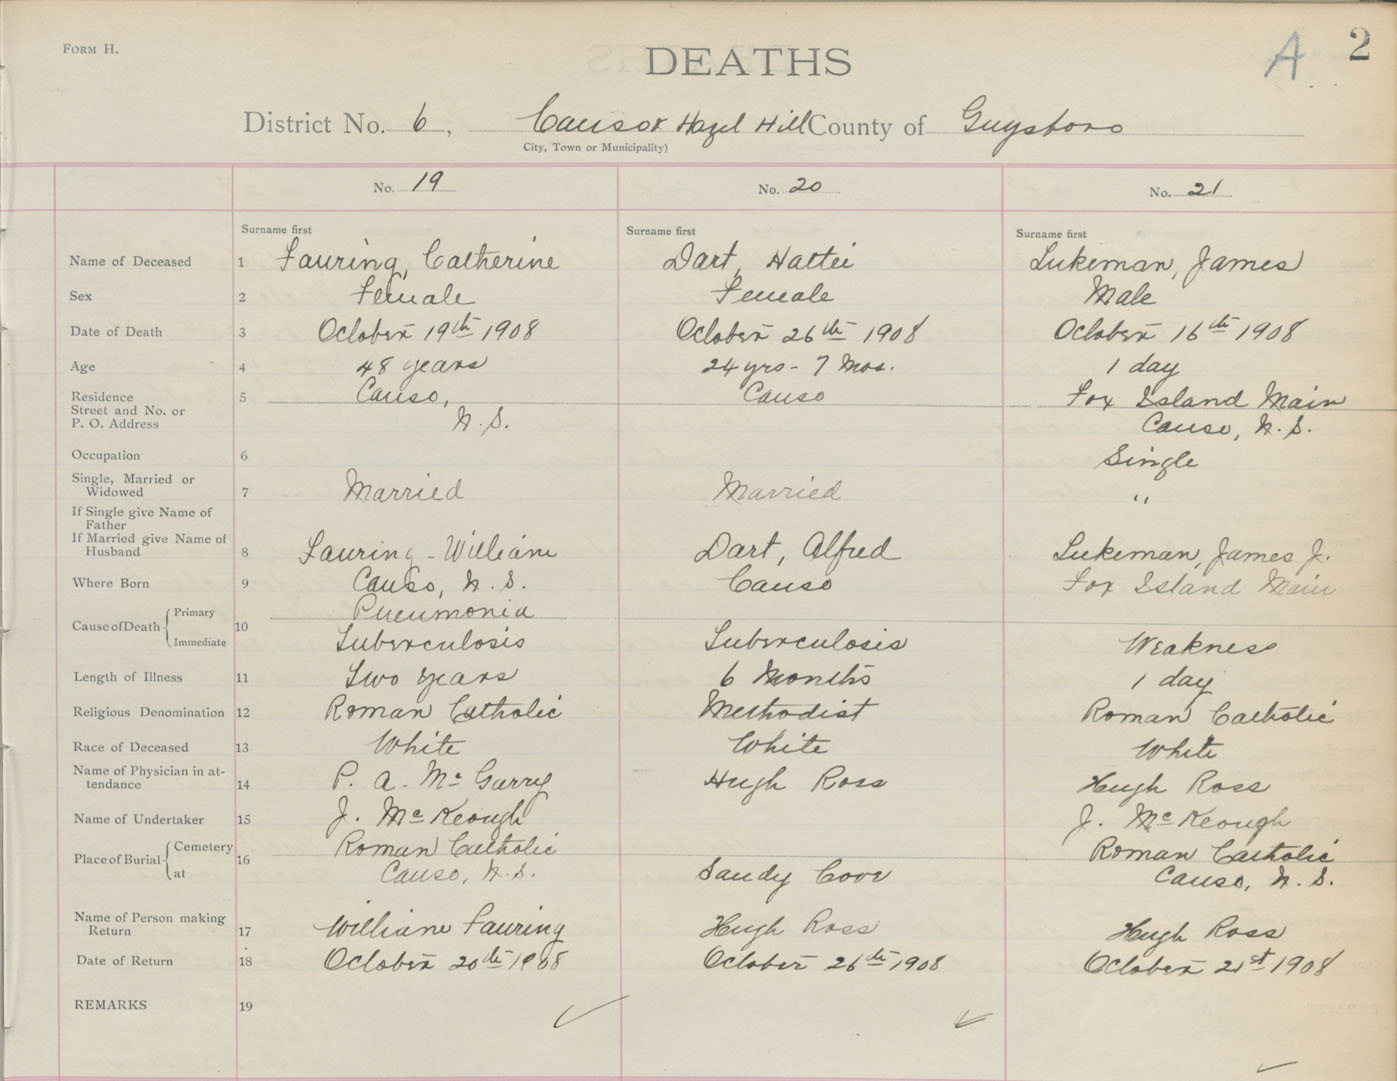 FORM H.
DEATHS
A
2
District No. 6, Canso & Hazel Hill County of Guysboro
City, Town or Municipality)
No. 19 No. 20 No. 21
Surname first Surname first Surname first
Name of Deceased 1 Fauring, Catherine Dart, Hattie Lukeman, James
Sex 2 Female Female Male
Date of Death 3 October 19th 1908 October 26th 1908 October 16th 1908
Age 4 48 years 24 yrs - 7 Mos. 1 day
Residence 5 Canso, Canso Fox Island Main
Street and No. or
P. O. Address N. S. Canso, N. S.
Occupation 6 Single
Single, Married or
Widowed 7 Married Married "
If Single give Name of
Father
If Married give Name of
Husband 8 Fauring - William Dart, Alfred Lukeman, James J.
Where Born 9 Canso, N. S. Canso Fox Island Main
Cause of Death 10 Primary Pneumonia
Immediate Tuberculosis Tuberculosis Weakness
Length of Illness 11 Two years 6 Months 1 day
Religious Denomination 12 Roman Catholic Methodist Roman Catholic
Race of Deceased 13 White White White
Name of Physician in at-
tendance 14 P. A. McGarry Hugh Ross Hugh Ross
Name of Undertaker 15 J. McKeough J. McKeough
Place of Burial 16 Cemetery Roman Catholic Roman Catholic
at Canso, N. S. Sandy Cove Canso, N. S.
Name of Person making
Return 17 William Fauring Hugh Ross Hugh Ross
Date of Return 18 October 20th 1908 October 26th 1908 October 21st 1908
REMARKS 19